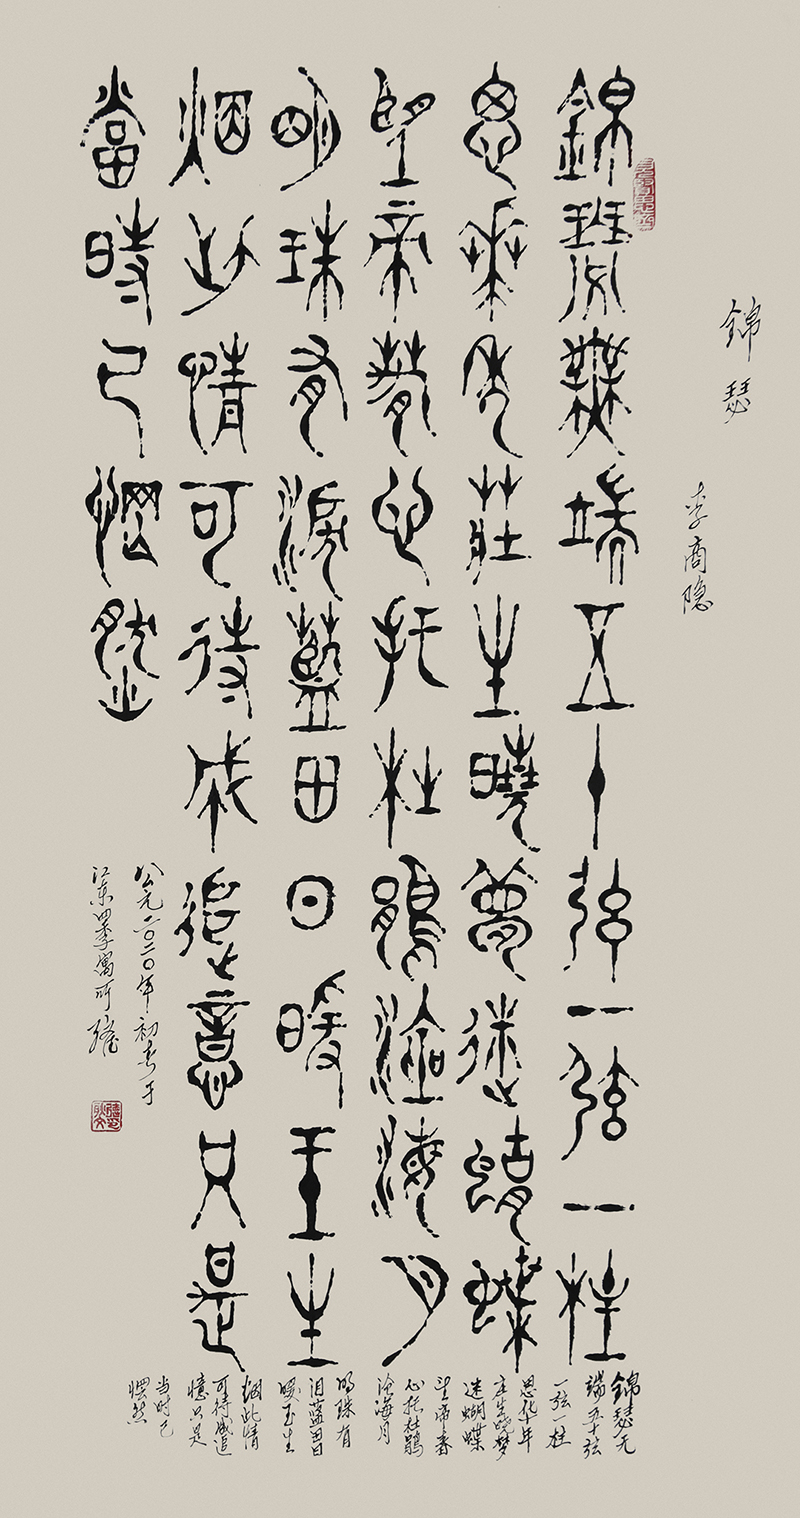 錦瑟
李商隐
錦瑟無端五十弦一弦一柱
思華年莊生曉夢迷蝴蝶
望帝春心托杜鵑滄海月
明珠有淚藍田日暖玉生
烟此情可待成追憶只是
當時已惘然
公元二〇二〇年初春于
江東四季寓所
錦瑟无
端五十弦
一弦一柱
思华年
庄生晓梦
迷蝴蝶
望帝春
心托杜鵑
沧海月
明珠有
泪蓝田日
暖玉生
烟此情
可待成追
憶只是
当时已
惘然